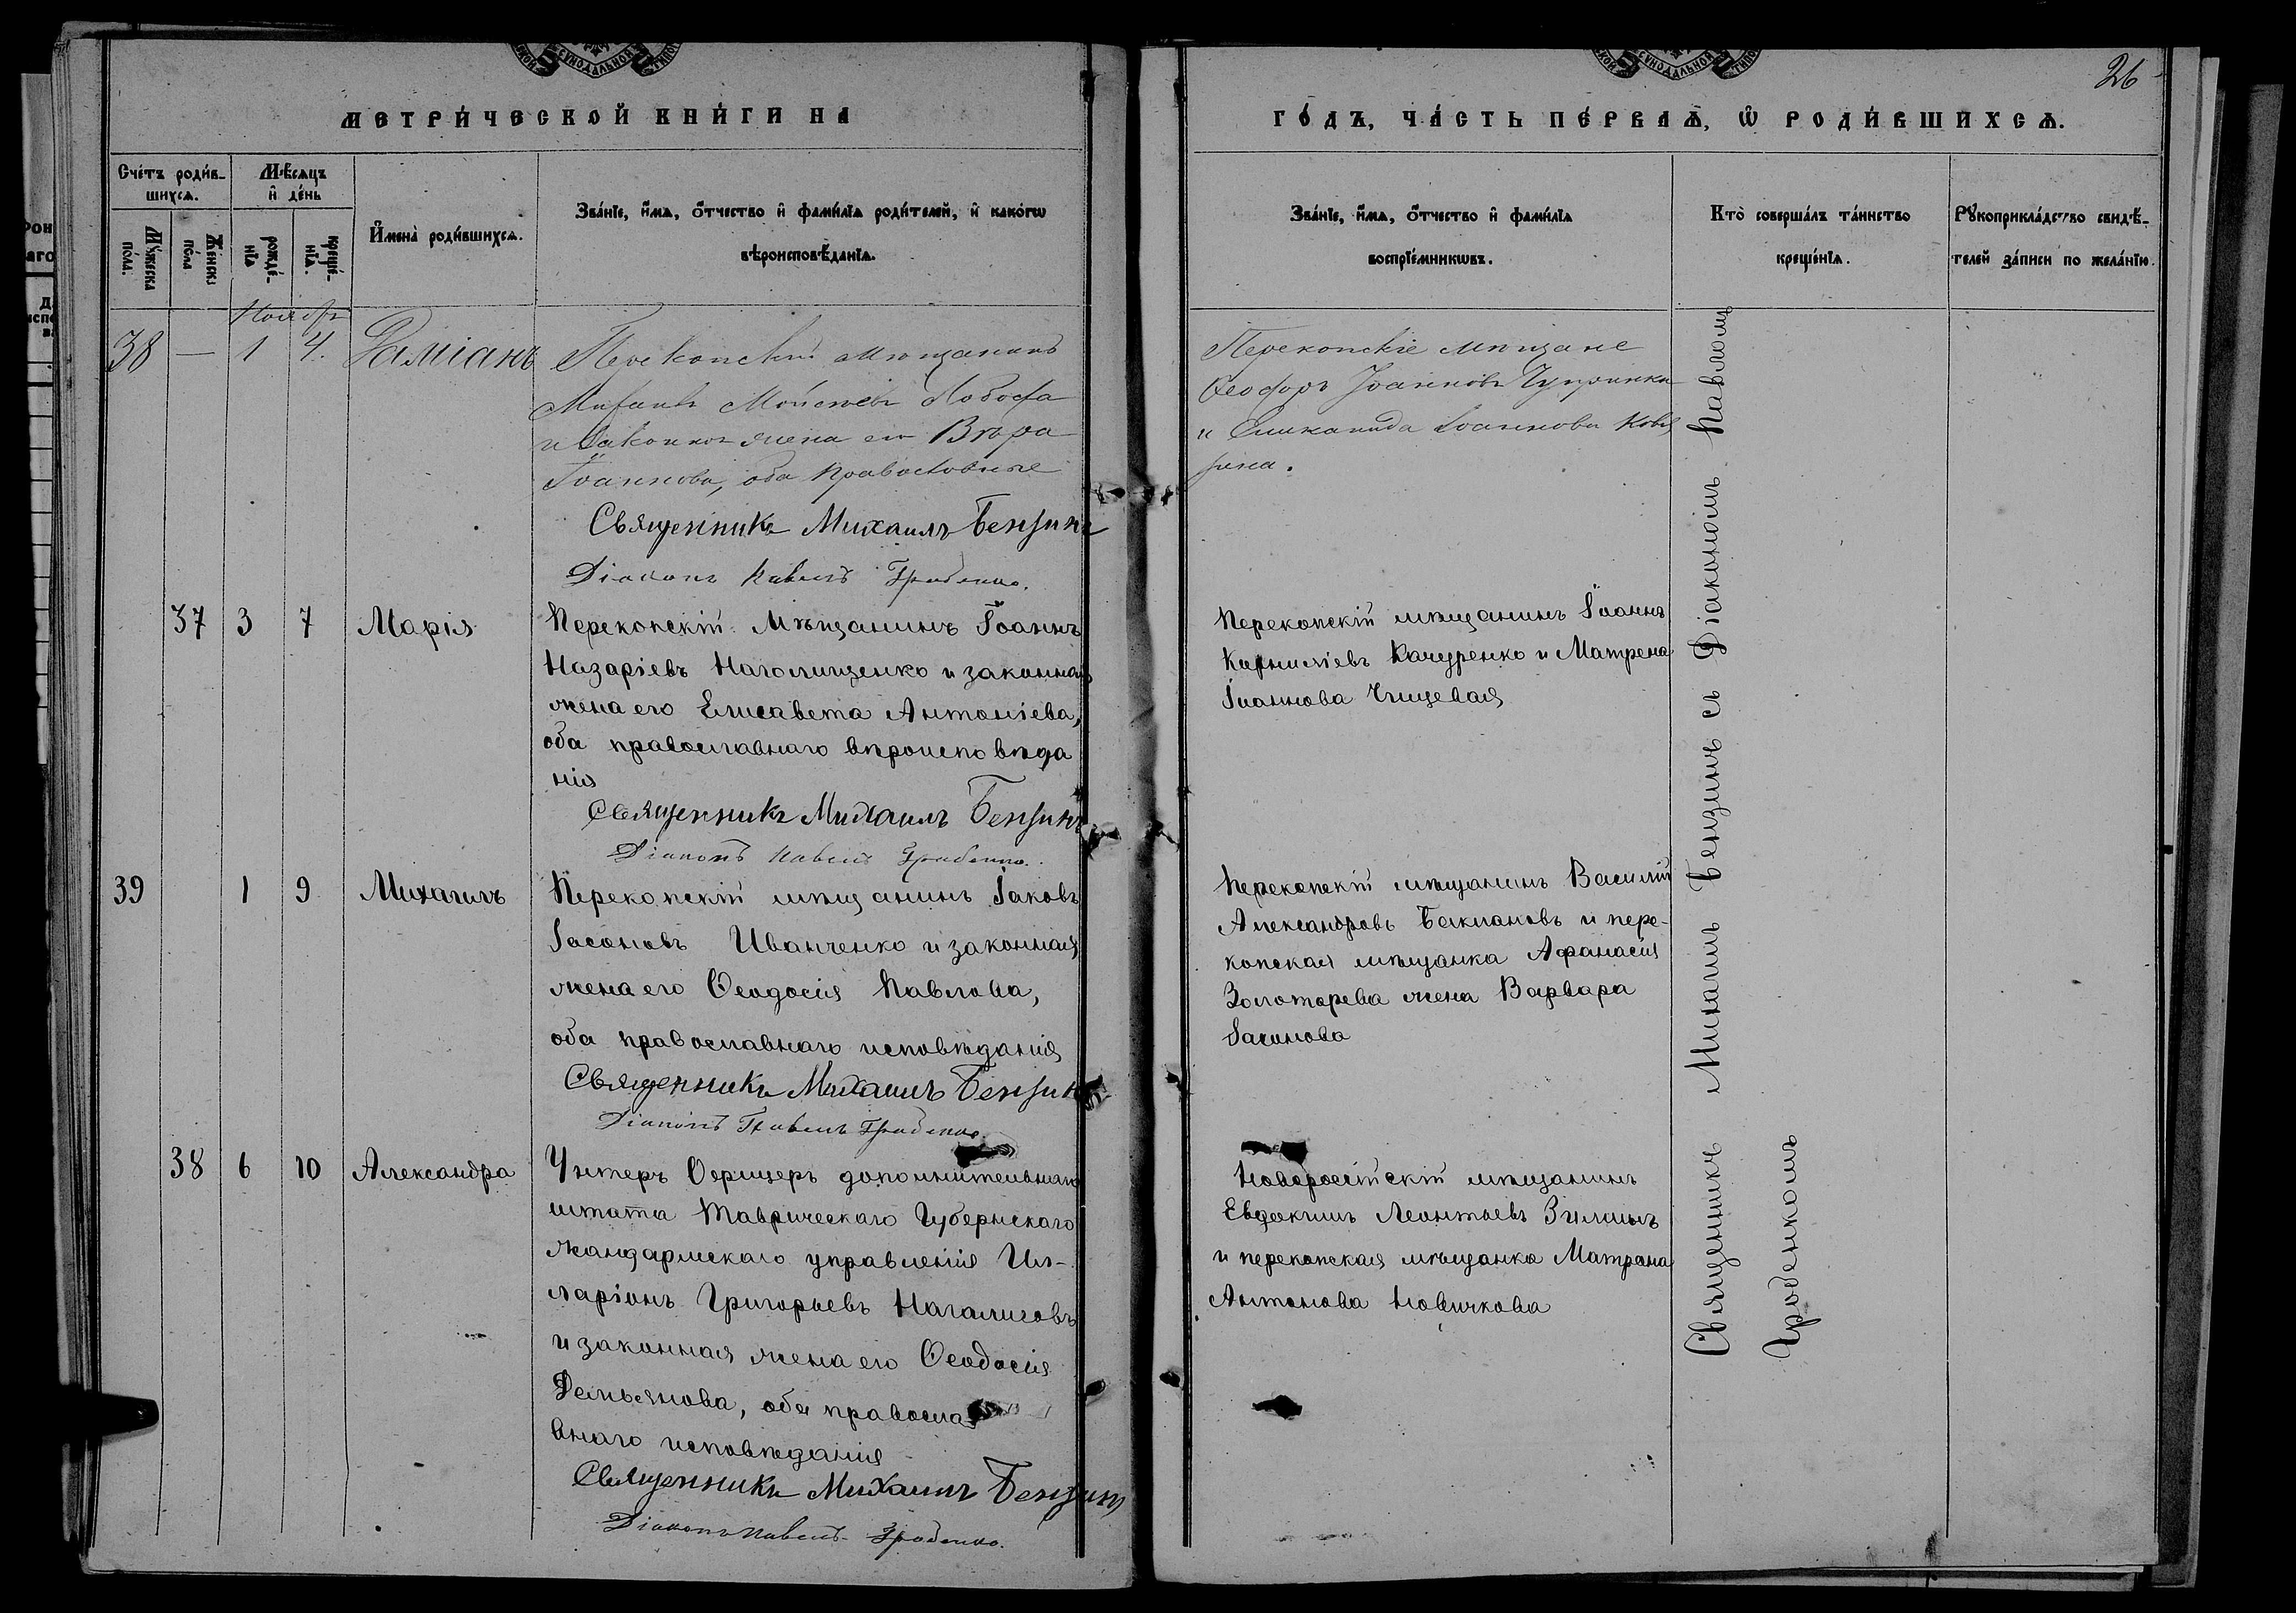 26
МЕТРИ́ЧЕСКОЙ КНИ́ГИ НА
ГО́ДЪ, ЧА́СТЬ ПЕ́РВАѦ, Ѽ РОДИ́ВШИХСѦ.
Сче́тъ роди́в-
шихсѧ.
Мѣ́сѧцъ
и҆ де́нь
Мꙋ́жеска по́ла.
Же́нска по́ла
рожде́-
нїѧ
креще́-
нїѧ.
И҆мена̀ роди́вшихсѧ.
Зва́нїе, и҆́мѧ, ѻ҆́тчество и҆ фами́лїѧ роди́телей, и҆ како́гѡ
вѣроисповѣ́данїѧ.
Зва́нїе, и҆́мѧ, ѻ҆́тчество и҆ фами́лїѧ
воспрїе́мникѡвъ.
Кто̀ соверша́лъ та́инство
креще́нїѧ.
Рꙋкоприкла́дство свидѣ́-
телей за́писи по жела́нїю.
Ноябрь
38 — 1 4. Даміанъ Перекопскій мѣщанинъ
Моисеевъ Лобода
и законная жена его Вѣра
Іоаннова, оба православные
Священникъ Михаилъ Бензинъ
Діаконъ Павелъ Гробенко.
Перекопскіе мѣщане
Ѳеодоръ Іоанновъ
и Іоаннова
37 3 7 Марія Перекопскій Мѣщанинъ Іоаннъ
Назаріевъ Наголищенко и законная
жена его Елисавета Антоніева,
оба православнаго вѣроисповѣда
нія
Священникъ Михаилъ Бензинъ
Діаконъ Павелъ Гробенко.
Перекопскій мѣщанинъ Іоаннъ
Корниліевъ Качуренко и Матрена
Іоаннова
39 1 9 Михаилъ Перекопскій мѣщанинъ Іаковъ
Іасоновъ Иванченко и законная
жена его Ѳеодосія Павлова,
оба православнаго исповѣданія
Священникъ Михаилъ Бензинъ
Діаконъ Павелъ Гробенко.
Перекопскій мѣщанинъ Василій
Александровъ Баклановъ и пере-
копская мѣщанка Афанасія
Золотарева жена Варвара
Іасонова
38 6 10 Александра Унтеръ Офицеръ дополнительнаго
штата Таврическаго Губернскаго
жандармскаго управленія Ил-
ларіонъ Григорьевъ
и законная жена его Ѳеодосія
Демьянова, оба правосла
внаго исповѣданія
Священникъ Михаилъ Бензинъ
Діаконъ Павелъ Гробенко.
Новоросійскій мѣщанинъ
Евдокимъ Леонтьевъ
и перекопская мѣщанка Матрена
Антонова Новичкова
Священникъ Михаилъ Бензинъ съ Діакономъ Павломъ
Гробенкомъ